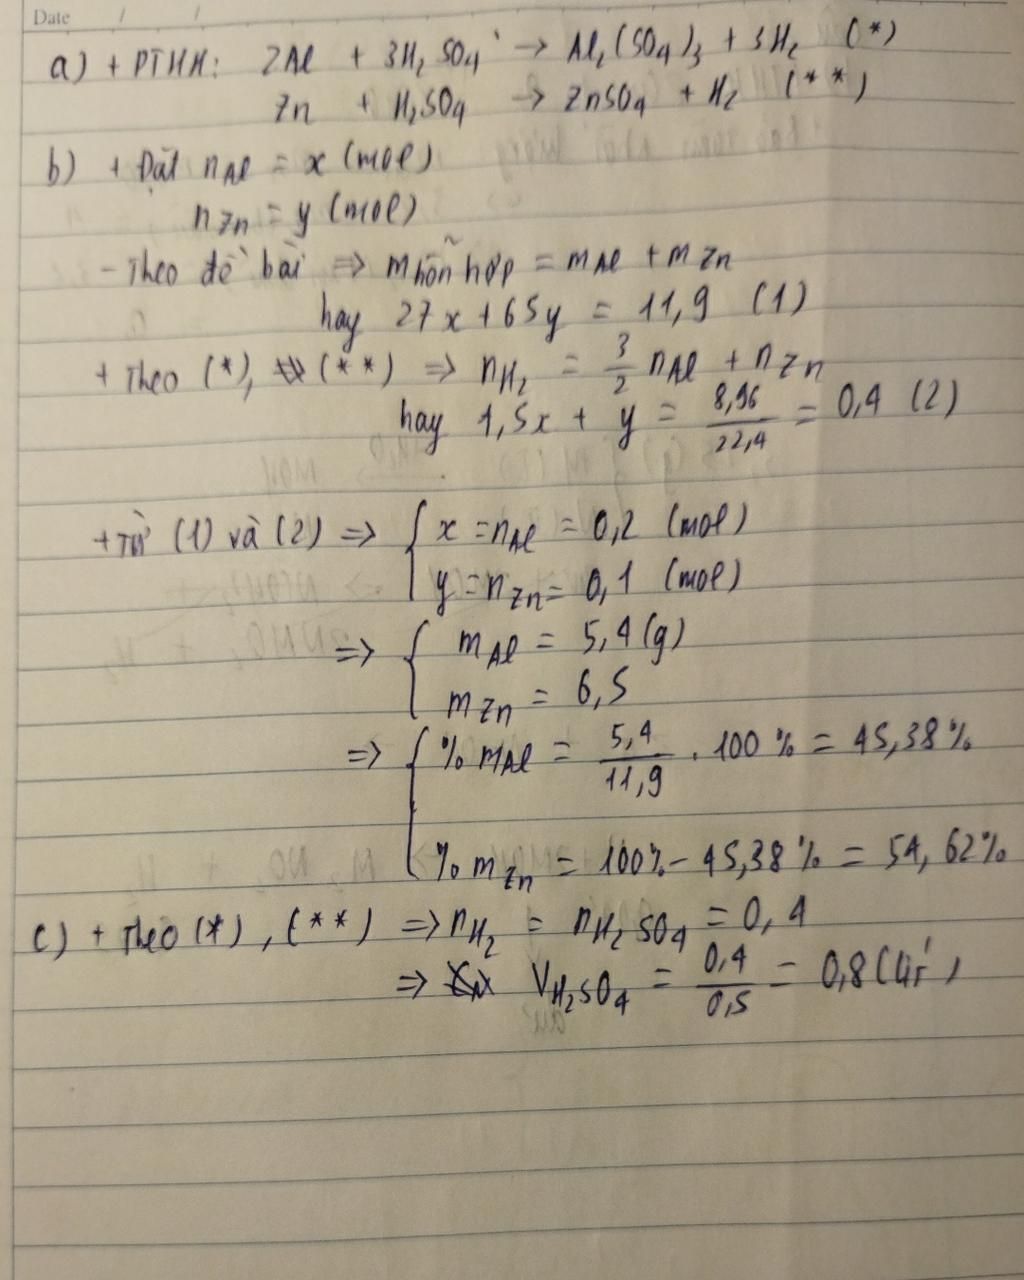 Date / /
a) + PTHH: 2Al + 3H₂SO₄ → Al₂(SO₄)₃ + 3H₂ (*)
Zn + H₂SO₄ → ZnSO₄ + H₂ (**)
b) + Đặt nAl = x (mol)
nZn = y (mol)
- Theo đề bài ⇒ m hỗn hợp = mAl + mZn
hay 27x + 65y = 11,9 (1)
+ Theo (*), (**) ⇒ nH₂ = 3/2 nAl + nZn
hay 1,5x + y = 8,96/22,4 = 0,4 (2)
+ Từ (1) và (2) ⇒ { x = nAl = 0,2 (mol)
y = nZn = 0,1 (mol)
⇒ { mAl = 5,4 (g)
mZn = 6,5
⇒ { % mAl = 5,4/11,9 . 100 % = 45,38 %
% mZn = 100% - 45,38 % = 54,62%
c) + Theo (*), (**) ⇒ nH₂ = nH₂SO₄ = 0,4
⇒ VH₂SO₄ = 0,4/0,5 = 0,8 (lít)